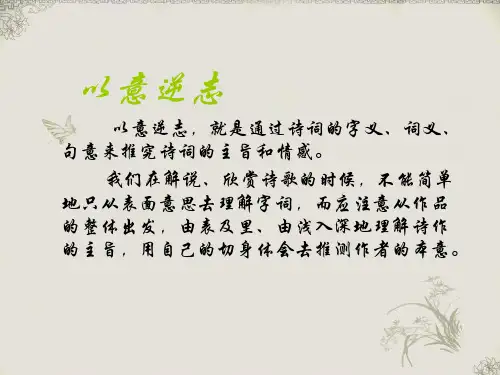 以意逆志
以意逆志，就是通过诗词的字义、词义、
句意来推究诗词的主旨和情感。
我们在解说、欣赏诗歌的时候，不能简单
地只从表面意思去理解字词，而应注意从作品
的整体出发，由表及里、由浅入深地理解诗作
的主旨，用自己的切身体会去推测作者的本意。